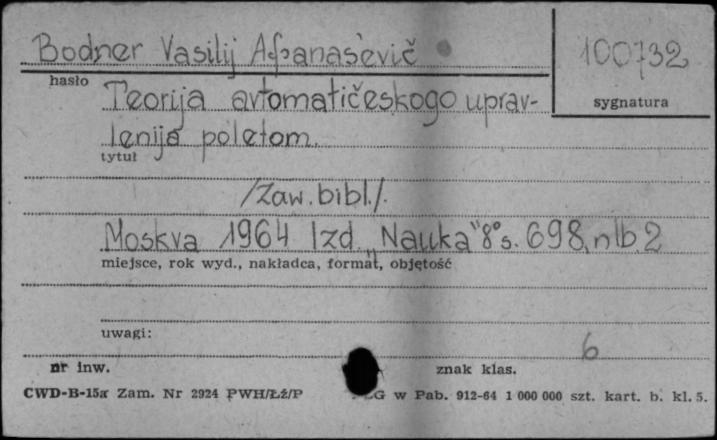 Bodner Vasilij Afanas'evič
100732
hasło
sygnatura
Teorija avtomatičeskogo uprav-
lenija poletom.
tytuł
/Zaw. bibl./.
Moskva 1964 Izd. "Nauka" 8° s. 698, nlb. 2
miejsce, rok wyd., nakładca, format, objętość
uwagi:
6
nr inw.
znak klas.
CWD-B-15a Zam. Nr 2924 PWH/Łź/P
G w Pab. 912-64 1 000 000 szt. kart. b. kl. 5.